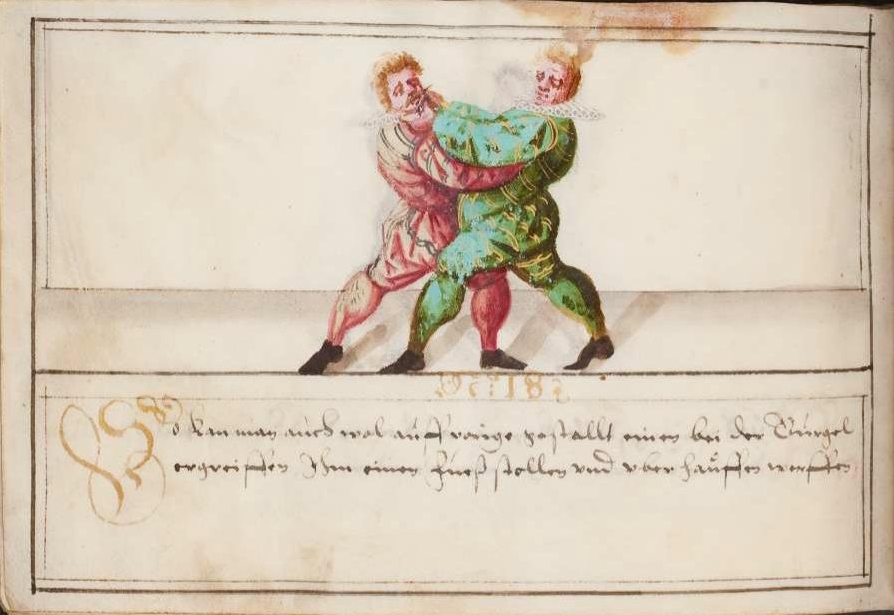 So kan man auch wol auff vorige gestallt einen bei der Gurgel
ergreiffen Ihm einen fueß stellen vnd vber hauffen werffen